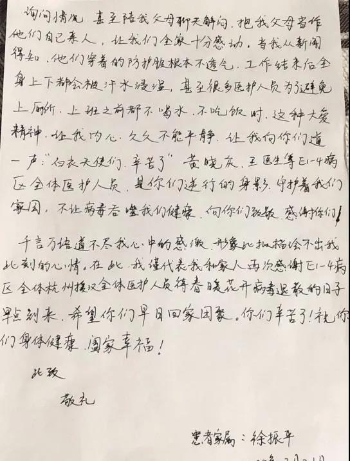 询问情况,甚至陪我父母聊天解闷,把我父母当作
他们自己亲人,让我们全家十分感动,当我从新闻
得知,他们穿着的防护服根本不透气,工作结束后全
身上下都会被汗水浸湿,甚至很多医护人员为了避免
上厕所,上班之前都不喝水,不吃饭时,这种大爱
精神,让我内心,久久不能平静,让我向你们道
一声:"白衣天使们,辛苦了"黄晓灰,王医生等E1-4病
区全体医护人员,是你们逆行的身影,守护着我们
家园,不让病毒吞噬我们健康,向你们致敬,感谢你们!
千言万语道不尽我心中的感激,形象比拟描绘不出我
此刻的心情。在此,我谨代表我和家人再次感谢E1-4病
区全体杭州援汉全体医护人员,待春暖花开病毒退散的日子
早点到来,希望你们早日回家团聚。你们辛苦了!祝你
们身体健康,阖家幸福!
此致
敬礼
患者家属:徐振平